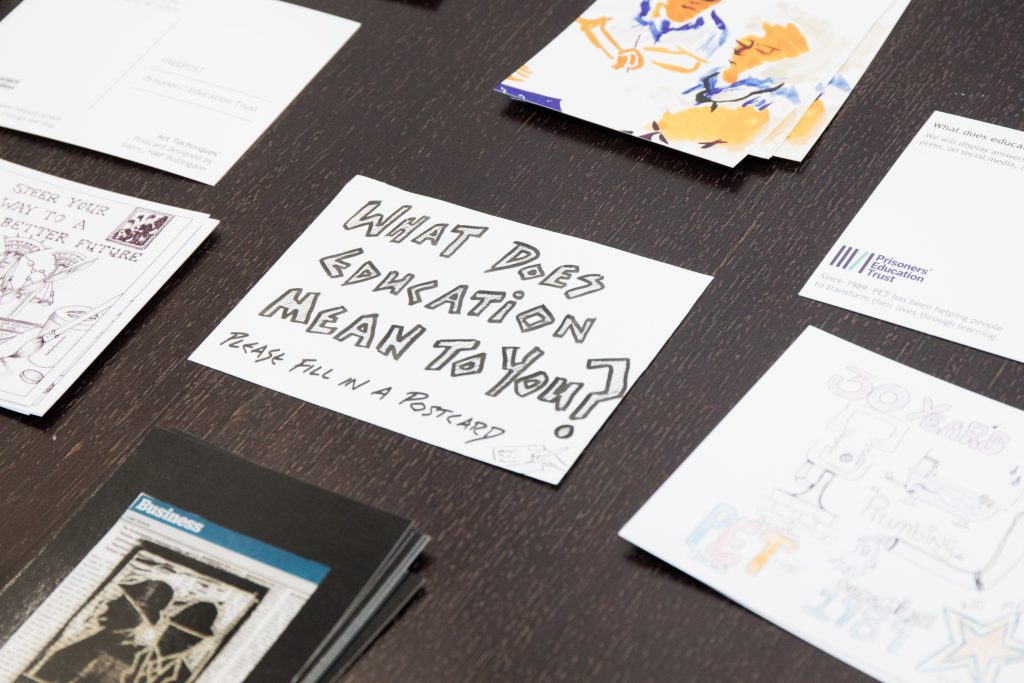 FREEPOST
Prisoners' Education Trust
Art Techniques
Postcard designed by
Garry, HMP Bullingdon
through learning
STEER YOUR
WAY TO A
BETTER FUTURE
WHAT DOES
EDUCATION
MEAN TO YOU?
PLEASE FILL IN A POSTCARD
What does educa
We will display answers
press, on social media,
Prisoners'
Education
Trust
Since 1989 PET has been helping people
to transform their lives through learning.
Business
30 YEARS
Plumbing
PET
1989